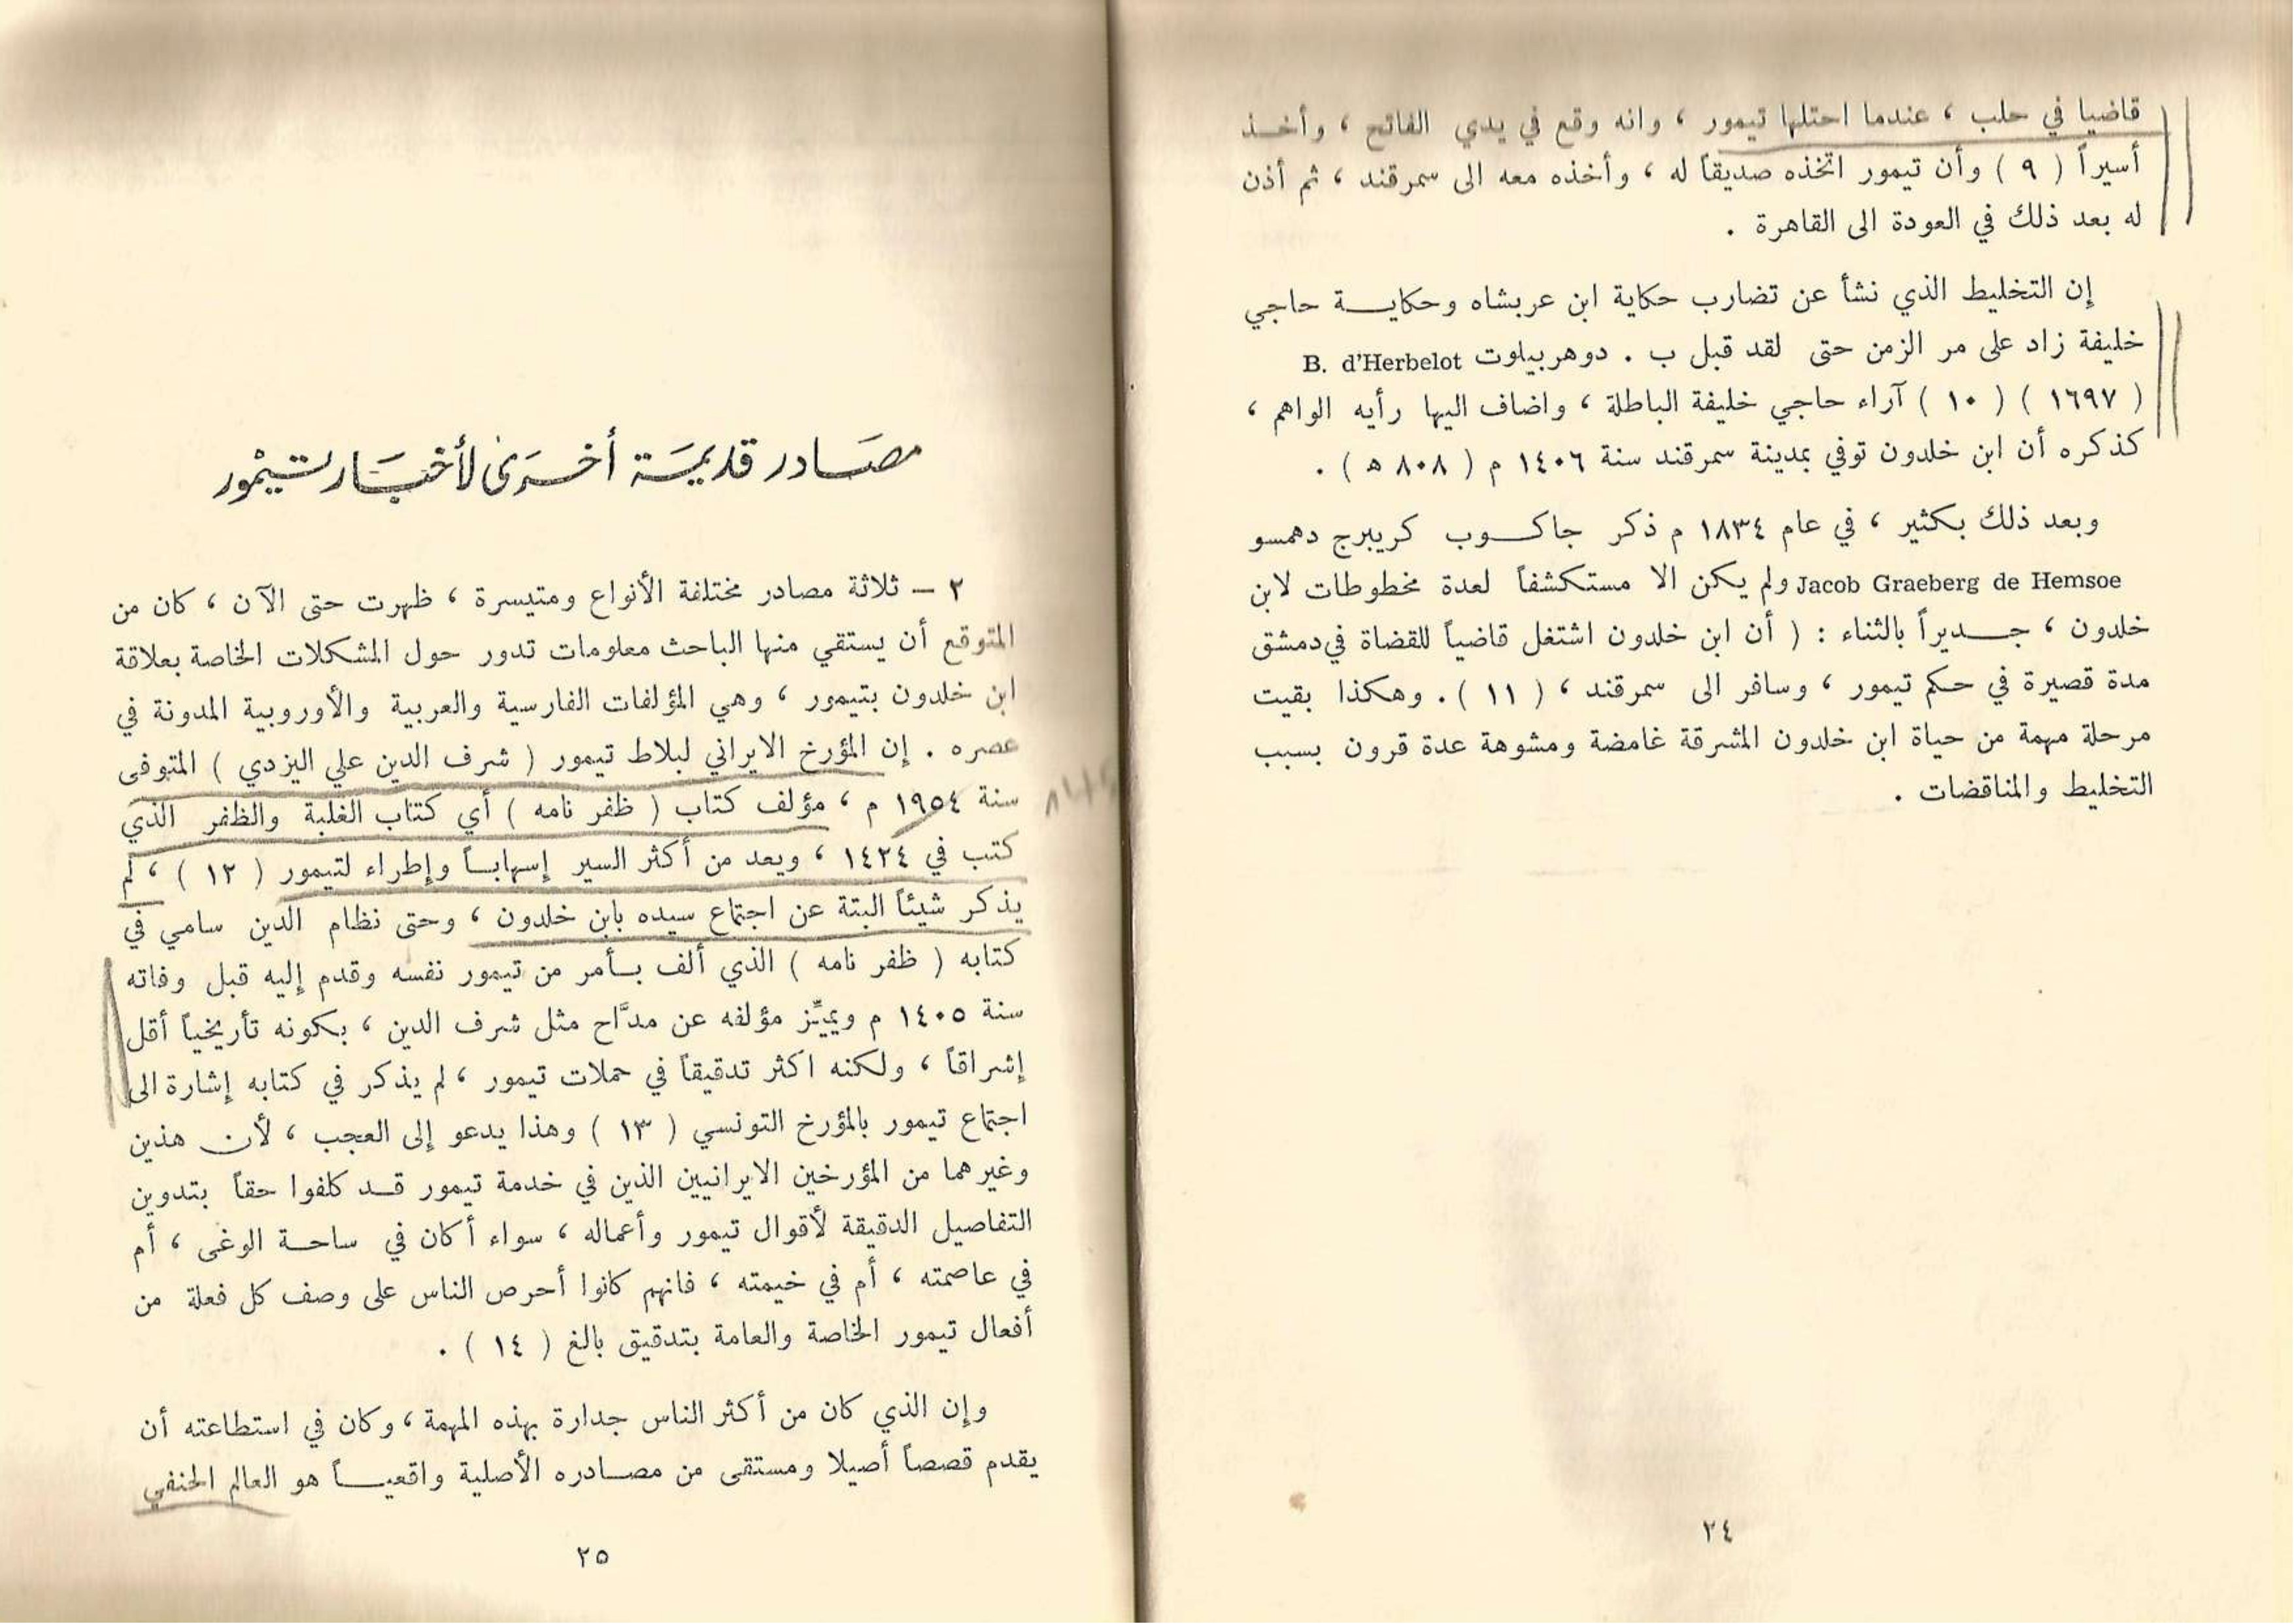 قاضيا في حلب ، عندما احتلها تيمور ، وانه وقع في يدي الفاتح ، وأخــذ
أسيراً ( ٩ ) وأن تيمور اتخذه صديقاً له ، وأخذه معه الى سمرقند ، ثم أذن
له بعد ذلك في العودة الى القاهرة .
إن التخليط الذي نشأ عن تضارب حكاية ابن عربشاه وحكايــة حاجي
خليفة زاد على مر الزمن حتى لقد قبل ب . دوهربيلوت B. d'Herbelot
( ١٦٩٧ ) ( ١٠ ) آراء حاجي خليفة الباطلة ، واضاف اليها رأيه الواهم ،
كذكره أن ابن خلدون توفي بمدينة سمرقند سنة ١٤٠٦ م ( ٨٠٨ ه ) .
وبعد ذلك بكثير ، في عام ١٨٣٤ م ذكر جاكــوب كريبرج دهمسو
Jacob Graeberg de Hemsoe ولم يكن الا مستكشفاً لعدة مخطوطات لابن
خلدون ، جــديراً بالثناء : ( أن ابن خلدون اشتغل قاضياً للقضاة في دمشق
مدة قصيرة في حكم تيمور ، وسافر الى سمرقند ، ( ١١ ) . وهكذا بقيت
مرحلة مهمة من حياة ابن خلدون المشرقة غامضة ومشوهة عدة قرون بسبب
التخليط والمناقضات .
٢٤
مصَــادر قديمَـة أخــرَى لأخبَــار تيمْور
٢ – ثلاثة مصادر مختلفة الأنواع ومتيسرة ، ظهرت حتى الآن ، كان من
المتوقع أن يستقي منها الباحث معلومات تدور حول المشكلات الخاصة بعلاقة
ابن خلدون بتيمور ، وهي المؤلفات الفارسية والعربية والأوروبية المدونة في
عصره . إن المؤرخ الايراني لبلاط تيمور ( شرف الدين علي اليزدي ) المتوفى
سنة ١٩٥٤ م ، مؤلف كتاب ( ظفر نامه ) أي كتاب الغلبة والظفر الذي
كتب في ١٤٢٤ ، ويعد من أكثر السير إسهابــاً وإطراء لتيمور ( ١٢ ) ، لم
يذكر شيئاً البتة عن اجتماع سيده بابن خلدون ، وحتى نظام الدين سامي في
كتابه ( ظفر نامه ) الذي ألف بــأمر من تيمور نفسه وقدم إليه قبل وفاته
سنة ١٤٠٥ م ويميِّز مؤلفه عن مدَّاح مثل شرف الدين ، بكونه تأريخياً أقل
إشراقاً ، ولكنه اكثر تدقيقاً في حملات تيمور ، لم يذكر في كتابه إشارة الى
اجتماع تيمور بالمؤرخ التونسي ( ١٣ ) وهذا يدعو إلى العجب ، لأن هذين
وغيرهما من المؤرخين الايرانيين الذين في خدمة تيمور قــد كلفوا حقاً بتدوين
التفاصيل الدقيقة لأقوال تيمور وأعماله ، سواء أكان في ساحــة الوغى ، أم
في عاصمته ، أم في خيمته ، فانهم كانوا أحرص الناس على وصف كل فعلة من
أفعال تيمور الخاصة والعامة بتدقيق بالغ ( ١٤ ) .
وإن الذي كان من أكثر الناس جدارة بهذه المهمة ، وكان في استطاعته أن
يقدم قصصاً أصيلا ومستقى من مصــادره الأصلية واقعيــاً هو العالم الحنفي
٢٥